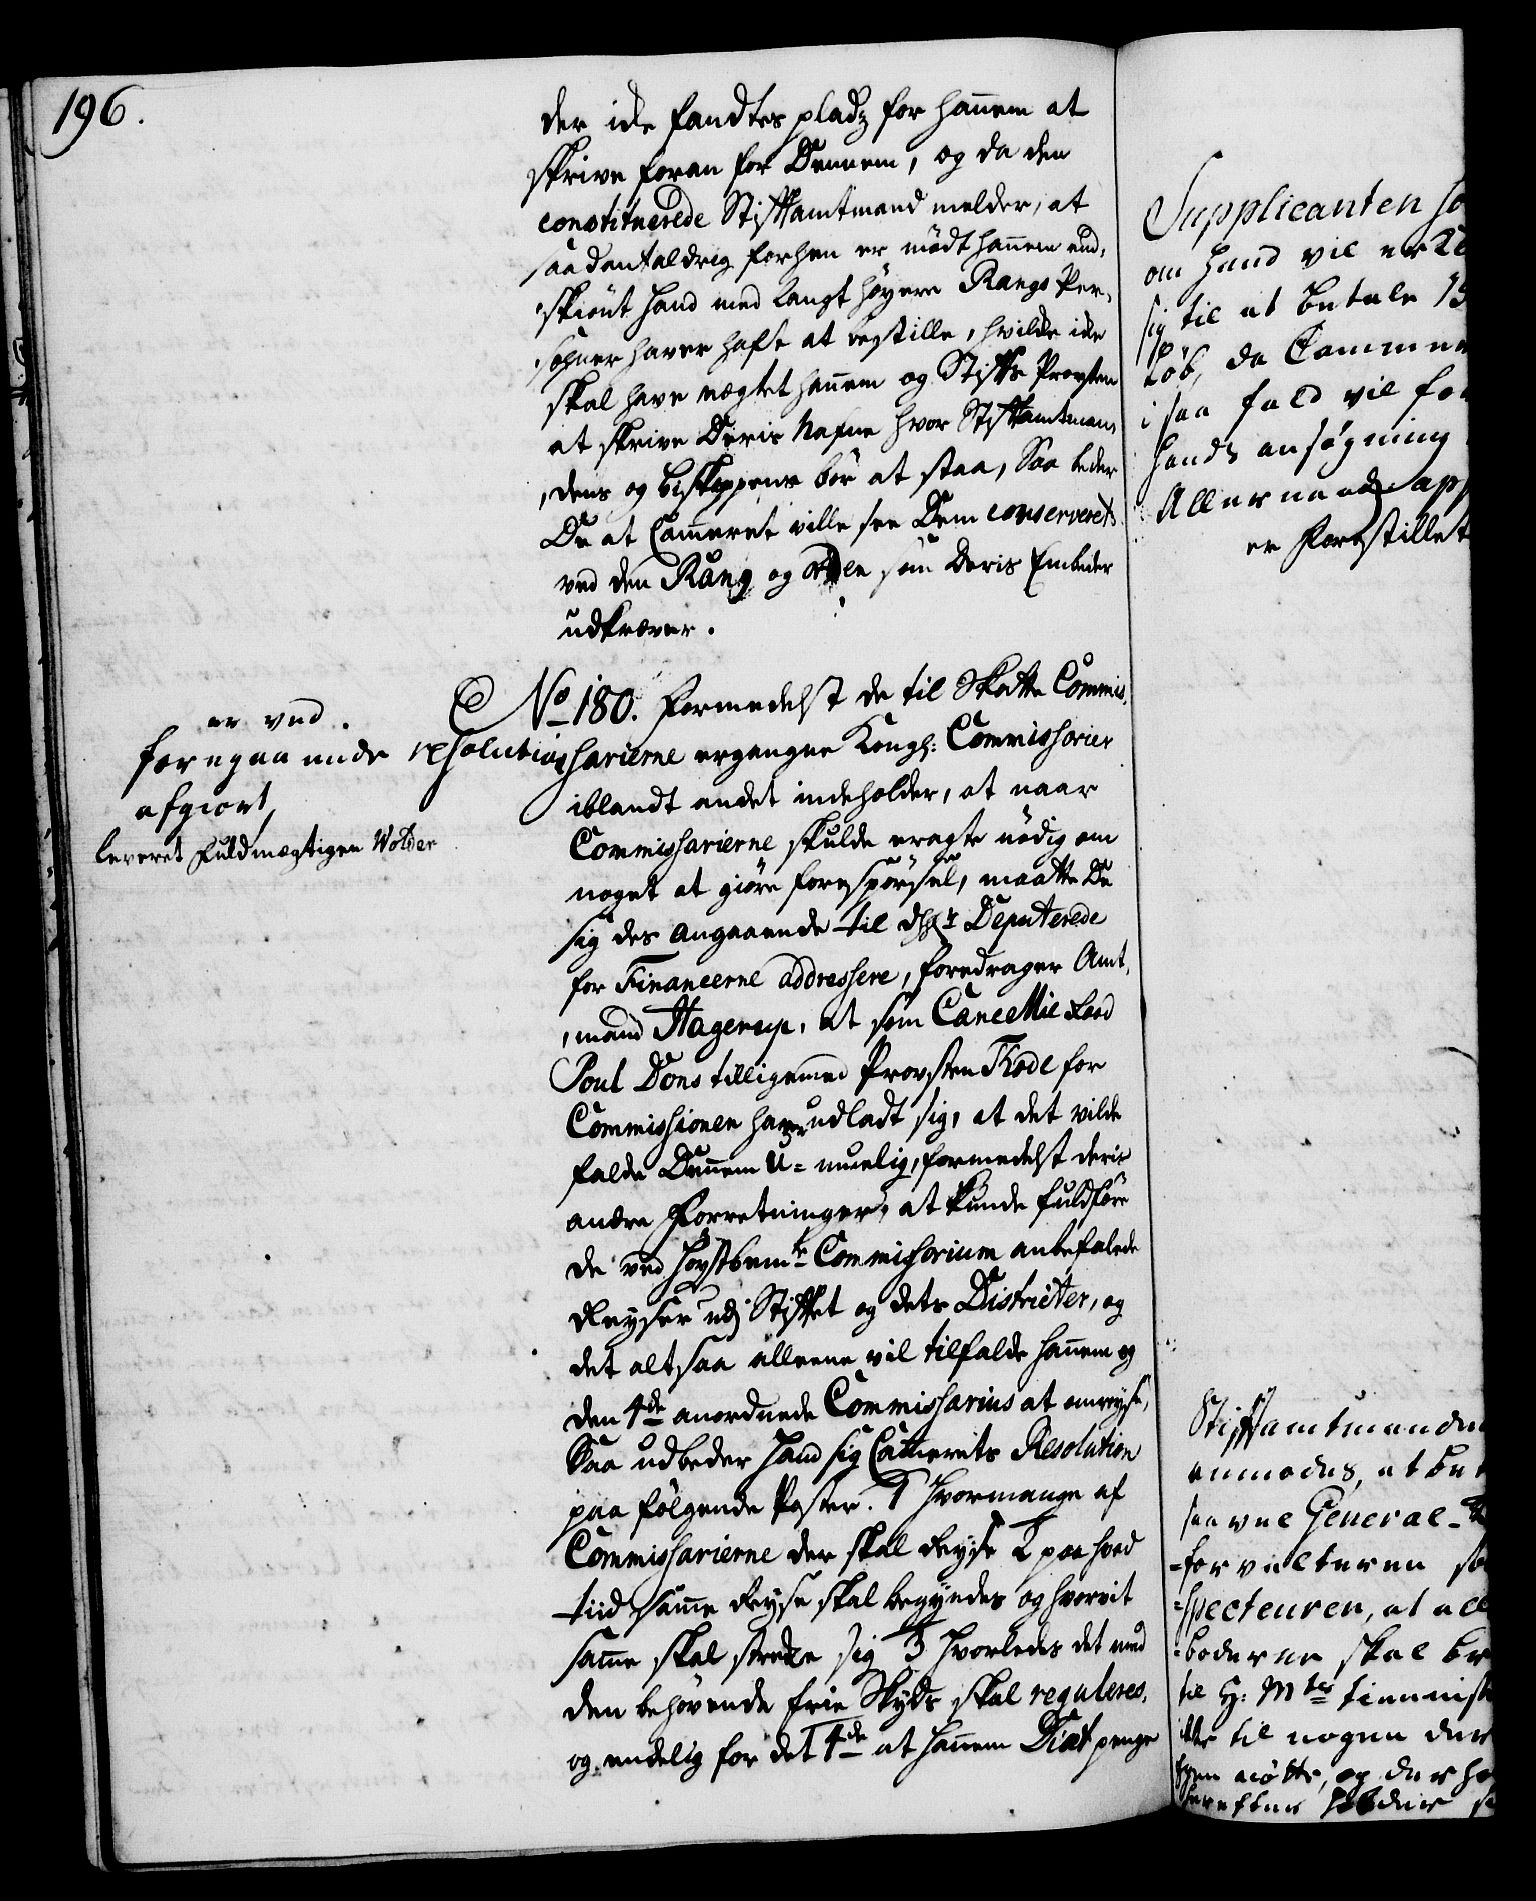 196.
der icke fandtes pladz for hannem at
skrive foran for Dennem, og da den
constituerede Stiftamtmand melder, at
saadant aldrig forhen er mödt hannem end,
skiönt hand med langt höyere Rangs Per,
sohner haver hafft at bestille, hvilcke icke
skal have nægtet hannem og Stifts Provsten
at skrive Deris Nafne hvor Stiftamtman,
,dens og Biskoppens bör at staa, Saa beder
De at Cammeret ville see Dem conserveret
ved den Rang og orden som deris Embeder
udkræver.
er ved
foregaaende resolution
afgiort,
leveret Fuldmægtigen Wolder
No 180. Formedelst de til Skatte Commis,
sarierne ergangne Kongl: Commissorier
iblandt andet indeholder, at naar
Commissarierne skulde eragte nödig om
noget at giöre forespörsel, maatte De
sig des angaaende til Deputerede
for Financerne addressere, foredrager Amt,
,mand Hagerup, at som Cancellie Raad
Poul Dons tilligemed Provsten Kode for
Commissionen haver udladt sig, at det vilde
falde Dennem U-muelig, formedelst deris
andre Forretninger, at kunde fuldföre
de ved höystbemte Commissorium anbefalede
Reyser udj Stiftet og dets Districter, og
det altsaa alleene vil tilfalde hannem og
den 4de anordnede Commissarius at omreyse,
Saa udbeder Hand sig Camerets Resolution
paa fölgende Poster. 1 hvormange af
Commissarierne der skal Reyse 2 paa hvad
tiid samme Reyse skal begyndes og hvorvit
samme skal strecke sig 3 hvorledes det med
den behövende frie Skyds skal reguleres,
og endelig for det 4de at hannem Diæt penge
Supplicanten
om hand vil
sig til at betale
löb, da Cammer
i saa fald vil
hands ansögning
Allernaadigst
er Forestillet
Stiftamtmanden
anmodes, at
saavel General
forvalteren
specteuren, at
boderne skal
til H: Mts tienniste
til nogen